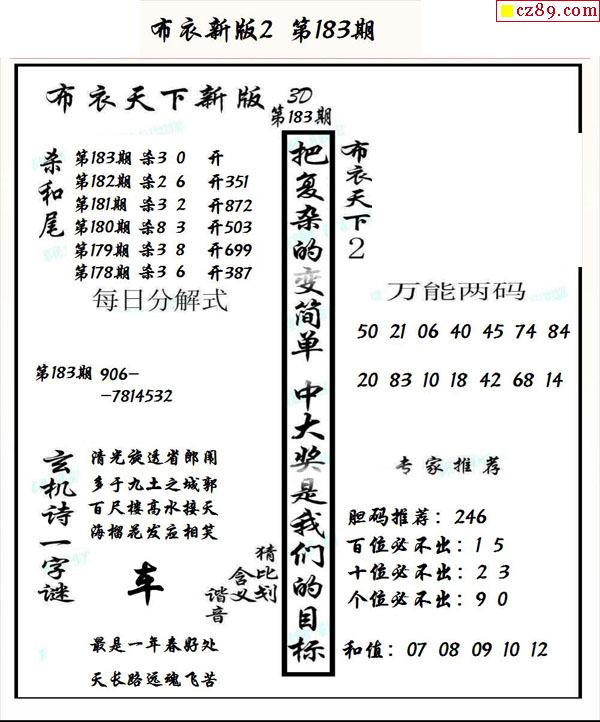 cz89.com
布衣新版2 第183期
布衣天下新版 3D
第183期
杀和尾
第183期 杀3 0 开
第182期 杀2 6 开351
第181期 杀3 2 开872
第180期 杀8 3 开503
第179期 杀3 8 开699
第178期 杀3 6 开387
每日分解式
第183期 906-
-7814532
玄机诗一字谜
清光旋透省郎闱
多于九土之城郭
百尺楼高水接天
海榴花发应相笑
车
猜比划
含义
谐音
最是一年春好处
天长路远魂飞苦
把复杂的变简单 中大奖是我们的目标
布衣天下2
万能两码
50 21 06 40 45 74 84
20 83 10 18 42 68 14
专家推荐
胆码推荐：246
百位必不出：1 5
十位必不出：2 3
个位必不出：9 0
和值：07 08 09 10 12